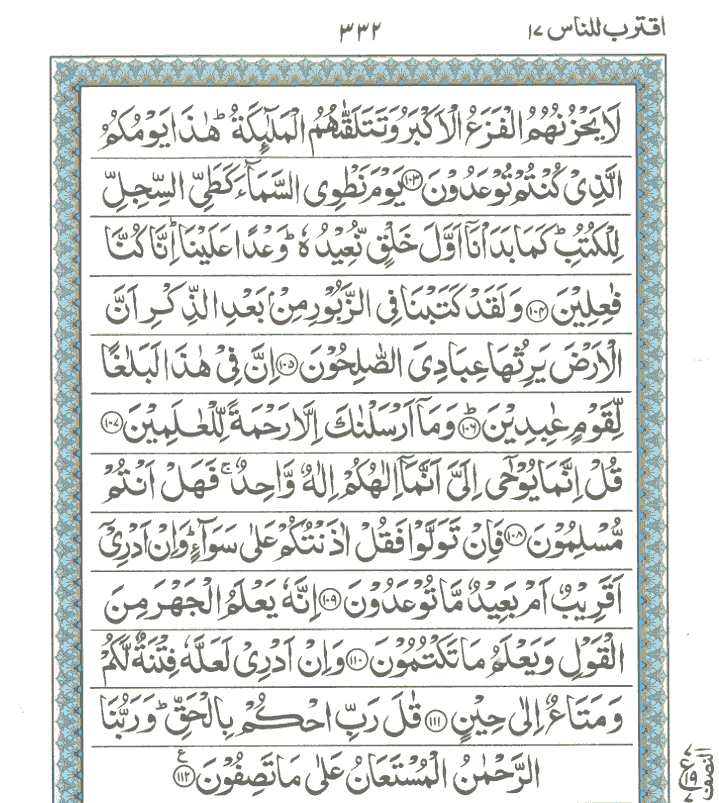 اقترب للناس ۱۷
۳۳۲
لَا يَحْزُنُهُمُ الْفَزَعُ الْاَكْبَرُ وَتَتَلَقّٰىهُمُ الْمَلٰٓئِكَةُ ؕ هٰذَا يَوْمُكُمُ
الَّذِىْ كُنْتُمْ تُوْعَدُوْنَ ﴿۱۰۳﴾ يَوْمَ نَطْوِى السَّمَآءَ كَطَىِّ السِّجِلِّ
لِلْكُتُبِ ؕ كَمَا بَدَاْنَاۤ اَوَّلَ خَلْقٍ نُّعِيْدُهٗ ؕ وَعْدًا عَلَيْنَا ؕ اِنَّا كُنَّا
فٰعِلِيْنَ ﴿۱۰۴﴾ وَلَقَدْ كَتَبْنَا فِى الزَّبُوْرِ مِنْۢ بَعْدِ الذِّكْرِ اَنَّ
الْاَرْضَ يَرِثُهَا عِبَادِىَ الصّٰلِحُوْنَ ﴿۱۰۵﴾ اِنَّ فِىْ هٰذَا لَبَلٰغًا
لِّقَوْمٍ عٰبِدِيْنَ ؕ﴿۱۰۶﴾ وَمَاۤ اَرْسَلْنٰكَ اِلَّا رَحْمَةً لِّلْعٰلَمِيْنَ ﴿۱۰۷﴾
قُلْ اِنَّمَا يُوْحٰۤى اِلَىَّ اَنَّمَاۤ اِلٰهُكُمْ اِلٰهٌ وَّاحِدٌ ۚ فَهَلْ اَنْتُمْ
مُّسْلِمُوْنَ ﴿۱۰۸﴾ فَاِنْ تَوَلَّوْا فَقُلْ اٰذَنْتُكُمْ عَلٰى سَوَآءٍ ؕ وَاِنْ اَدْرِىْۤ
اَقَرِيْبٌ اَمْ بَعِيْدٌ مَّا تُوْعَدُوْنَ ﴿۱۰۹﴾ اِنَّهٗ يَعْلَمُ الْجَهْرَ مِنَ
الْقَوْلِ وَيَعْلَمُ مَا تَكْتُمُوْنَ ﴿۱۱۰﴾ وَاِنْ اَدْرِىْ لَعَلَّهٗ فِتْنَةٌ لَّكُمْ
وَمَتَاعٌ اِلٰى حِيْنٍ ﴿۱۱۱﴾ قٰلَ رَبِّ احْكُمْ بِالْحَقِّ ؕ وَرَبُّنَا
الرَّحْمٰنُ الْمُسْتَعَانُ عَلٰى مَا تَصِفُوْنَ ﴿۱۱۲﴾ ع
النصف
ع ۱۹